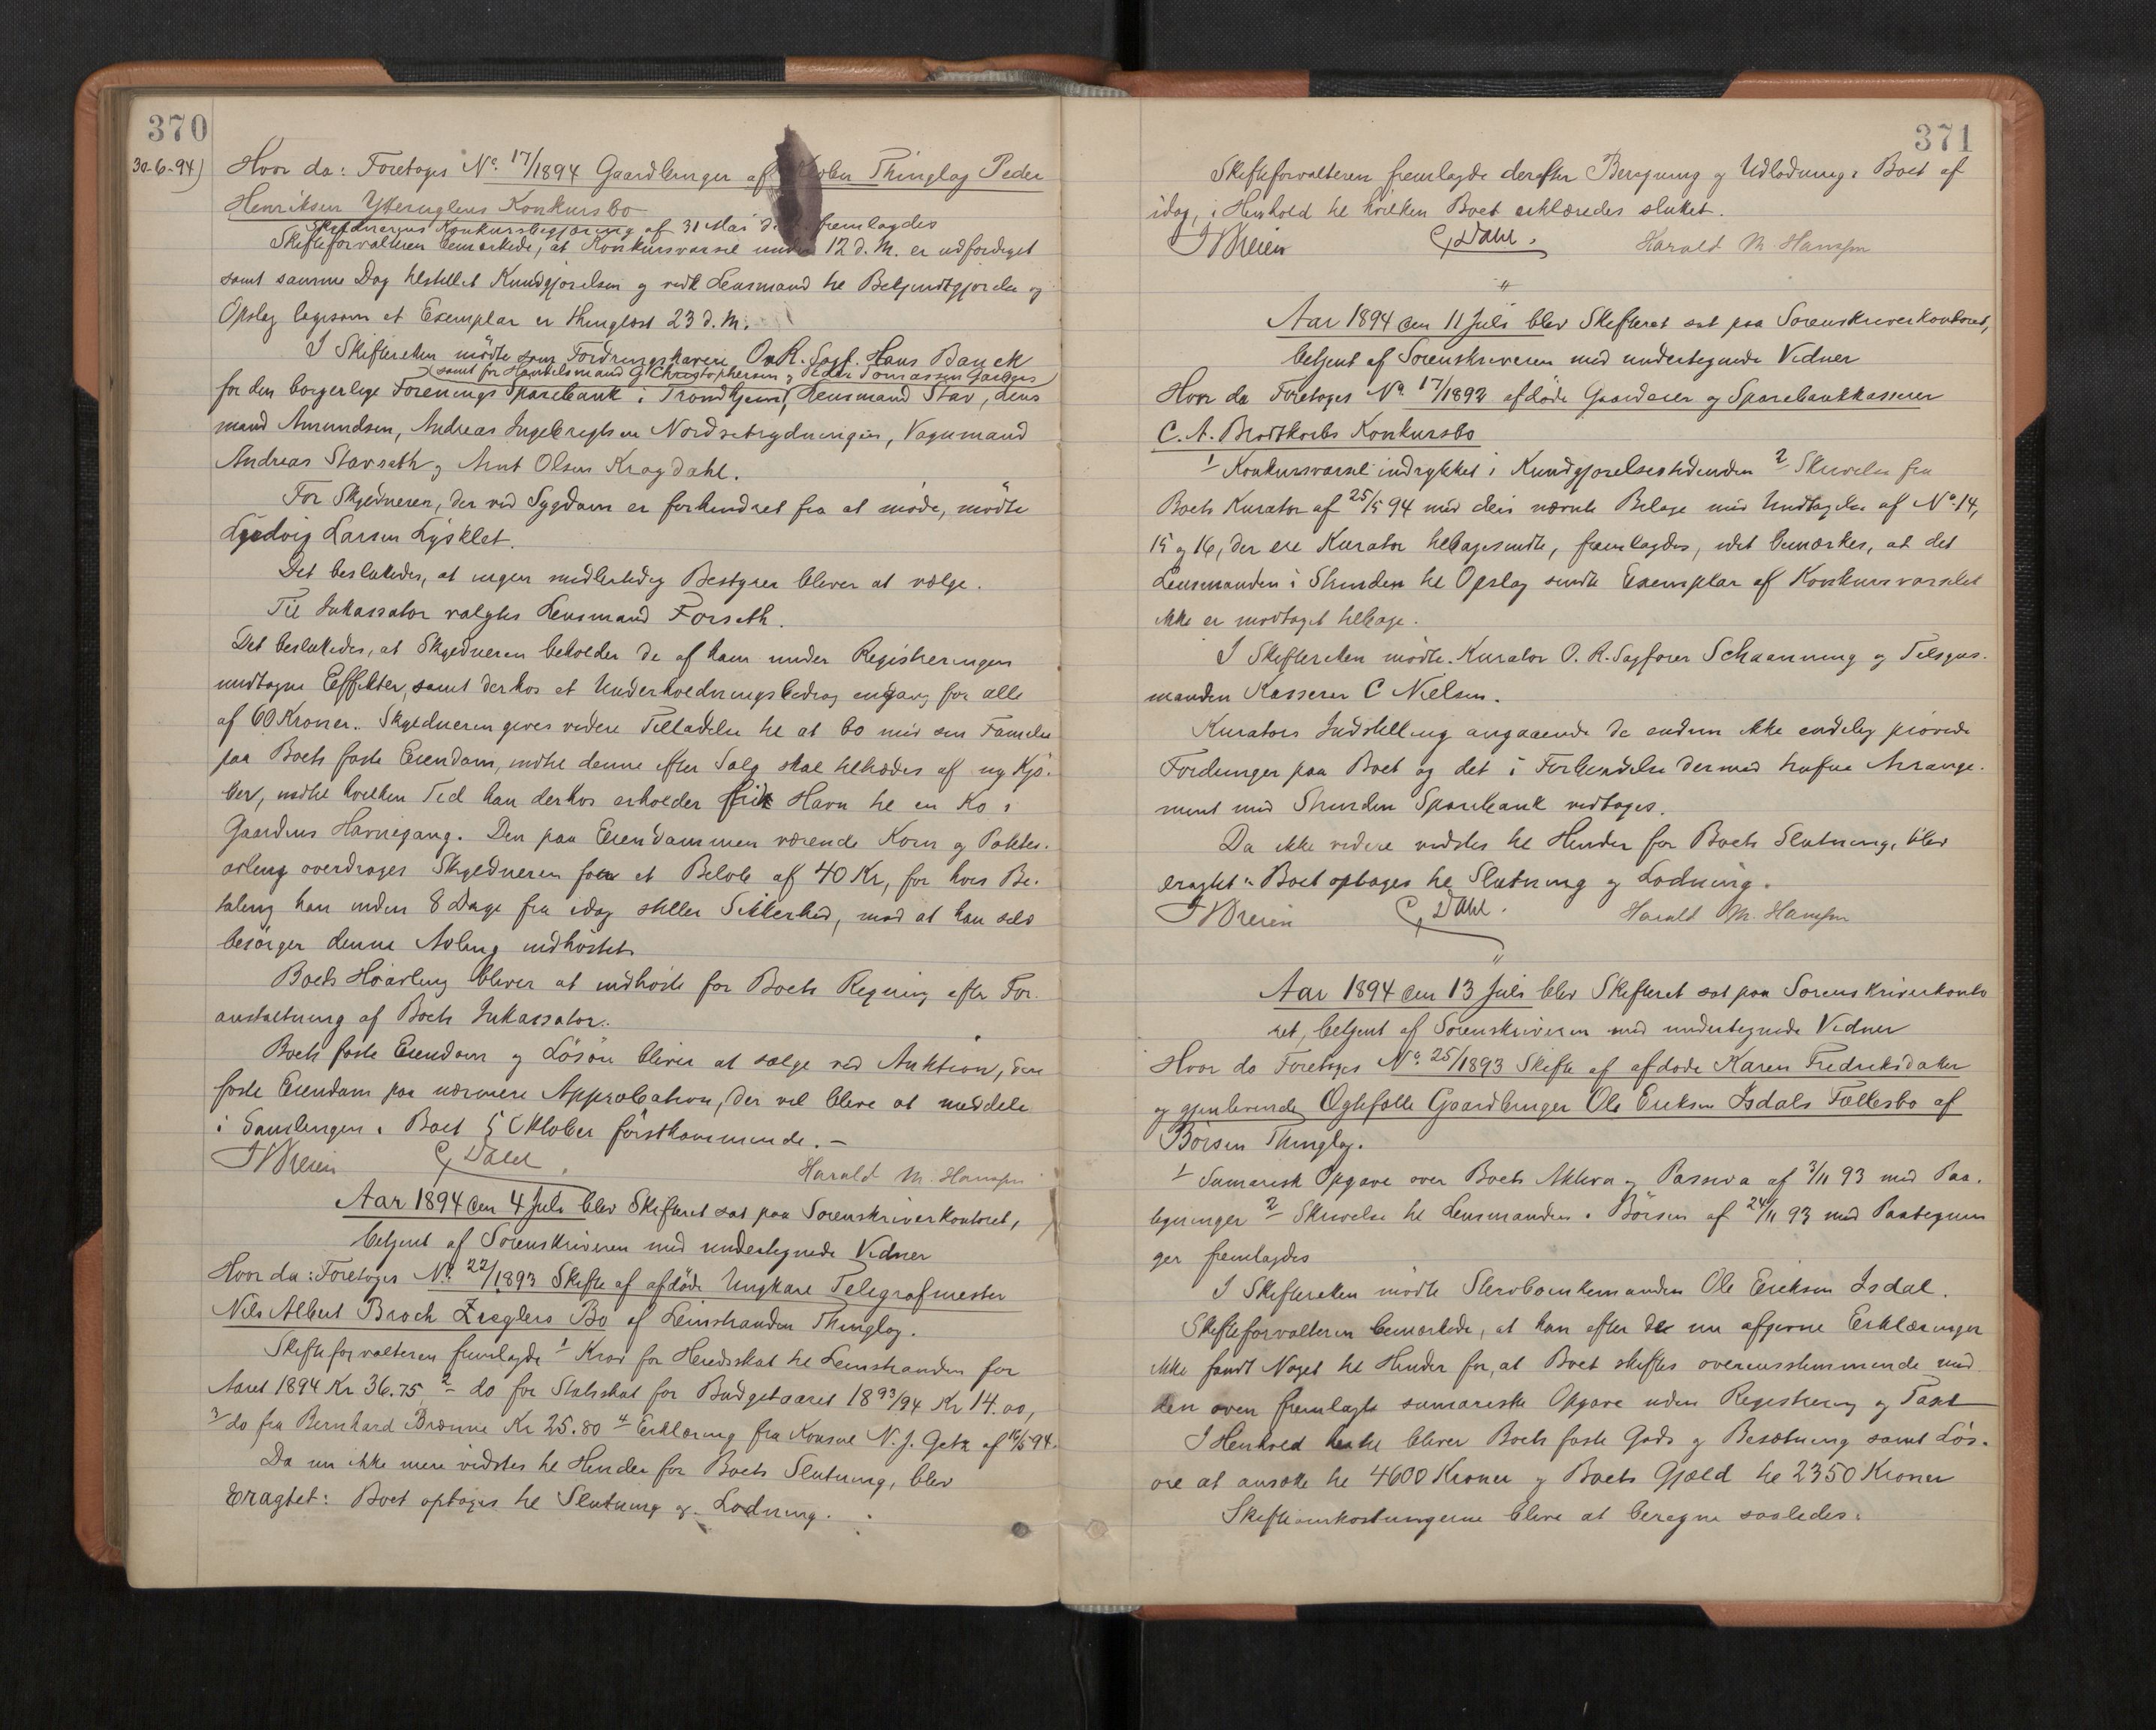 370
30-6-94)
Hvor da: Foretoges No. 17/1894 Gaardbruger af Thinglag Peder
Henriksen Ytteruglens Konkursbo
Skyldnerens Konkursbegjæring af 31 Mai fremlagdes
Skifteforvalteren bemærkede, at Konkursvarsel under 12 d. M. er udfærdiget
samt samme Dag tilstillet Kundgjørelsen og vedk Lensmand til Bekjendtgjørelse og
Opslag ligesom et Exemplar er thinglæst 23 d. M.
I Skifteretten mødte som Fordringshavere O. R. Sagf. Hans Bauck
samt for Handelsmand G Christophersen og Peder Tomassen
for den borgerlige Forenings Sparebank i Trondhjem, Lensmand Stav, Lens
mand Amundsen, Andreas Ingebregtsen Nordsetrydningen, Vognmand
Andreas Stavseth og Arnt Olsen Kragdahl.
For Skyldneren, der ved Sygdom er forhindret fra at møde, mødte
Larsen Lysklet.
Det besluttedes, at ingen midlertidig Bestyrer bliver at vælge.
Til Inkassator valgtes Lensmand Forseth.
Det besluttedes, at Skyldneren beholder de af ham under Registreringen
undtagne Effekter, samt derhos et Underholdningsbidrag engang for alle
af 60 Kroner. Skyldneren gives videre Tilladelse til at bo med sin Familie
paa Boets faste Eiendom, indtil denne efter Salg skal tiltrædes af ny Kjø-
ber, indtil hvilken Tid han derhos erholder frit Havn til en Ko i
Gaardens Havnegang. Den paa Eiendommen værende Korn og Potetes-
avling overdrages Skyldneren for et Beløb af 40 Kr, for hvis Be-
taling han inden 8 Dage fra idag stiller Sikkerhed, mod at han selv
besørger denne Avling indhøstet.
Boets Høavling bliver at indhøste for Boets Regning efter For-
anstaltning af Boets Inkassator.
Boets faste Eiendom og Løsøre bliver at sælge ved Auktion, den
faste Eiendom paa nærmere Approbation, der vil blive at meddele
i Samlingen i Boet 5 Oktober førstkommende. —
C Dahl Harald M. Hansen
Aar 1894 den 4 Juli blev Skifteret sat paa Sorenskriverkontoret,
betjent af Sorenskriveren med undertegnede Vidner
Hvor da: Foretoges No. 22/1893 Skifte af afdøde Ungkare Telegrafmester
Nils Albert Broch Zieglers Bo af Leinstranden Thinglag.
Skifteforvalteren fremlagde 1 Krav for Heredsskat til Leinstranden for
Aaret 1894 Kr 36.75 2 do for Statsskat for Budgetaaret 1893/94 Kr 14.00,
3 do fra Bernhard Brænne Kr 25.80 4 Erklæring fra Konsul N. J. Getz af 16/5 94.
Da nu ikke mere vidstes til Hinder for Boets Slutning, blev
Eragtet: Boet optages til Slutning og Lodning.
371
Skifteforvalteren fremlagde derefter Beregning og Udlodning i Boet af
idag, i Henhold til hvilken Boet erklæredes sluttet.
C Dahl. Harald M. Hansen
"
Aar 1894 den 11 Juli blev Skifteret sat paa Sorenskriverkontoret,
betjent af Sorenskriveren med undertegnede Vidner
Hvor da Foretoges No. 17/1892 afdøde Gaardeier og Sparebankkasserer
C. A. Brodtkorbs Konkursbo
1 Konkursvarsel indrykket i Kundgjørelsestidenden 2 Skrivelse fra
Boets Kurator af 25/5 94 med deri nævnte Bilage med Undtagelse af No. 14,
15 og 16, der ere Kurator tilbagesendte, fremlagdes, idet bemærkes, at det
Lensmanden i Strinden til Opslag sendte Exemplar af Konkursvarslet
ikke er modtaget tilbage.
I Skifteretten mødte Kurator O. R. Sagfører Schaanning og Tilsyns-
manden Kasserer C Nielsen.
Kurators Indstilling angaaende de endnu ikke endelig prøvede
Fordringer paa Boet og det i Forbindelse dermed trufne Arrange-
ment med Strinden Sparebank vedtoges.
Da ikke videre vidstes til Hinder for Boets Slutning, blev
eragtet: Boet optages til Slutning og Lodning.
C Dahl. Harald M. Hansen
"
Aar 1894 den 13 Juli blev Skifteret sat paa Sorenskriverkonto
ret, betjent af Sorenskriveren med undertegnede Vidner
Hvor da Foretoges No. 25/1893 Skifte af afdøde Karen Fredriksdatter
og gjenlevende Ægtefælle Gaardbruger Ole Eriksen Isdals Fællesbo af
Børsen Thinglag.
1 Sumarisk Opgave over Boets Aktiva og Passiva af 3/11 93 med Paa-
tegninger 2 Skrivelse til Lensmanden i Børsen af 24/11 93 med Paategnin
ger fremlagdes
I Skifteretten mødte Stervboenkemanden Ole Eriksen Isdal.
Skifteforvalteren bemærkede, at han efter de nu afgivne Erklæringer
ikke fandt Noget til Hinder for, at Boet skiftes overensstemmende med
den oven fremlagte sumariske Opgave uden Registrering og Taxt
I Henhold hertil bliver Boets faste Gods og Besætning samt Løs-
øre at ansætte til 4600 Kroner og Boets Gjæld til 2350 Kroner
Skifteomkostningerne blive at beregne saaledes: